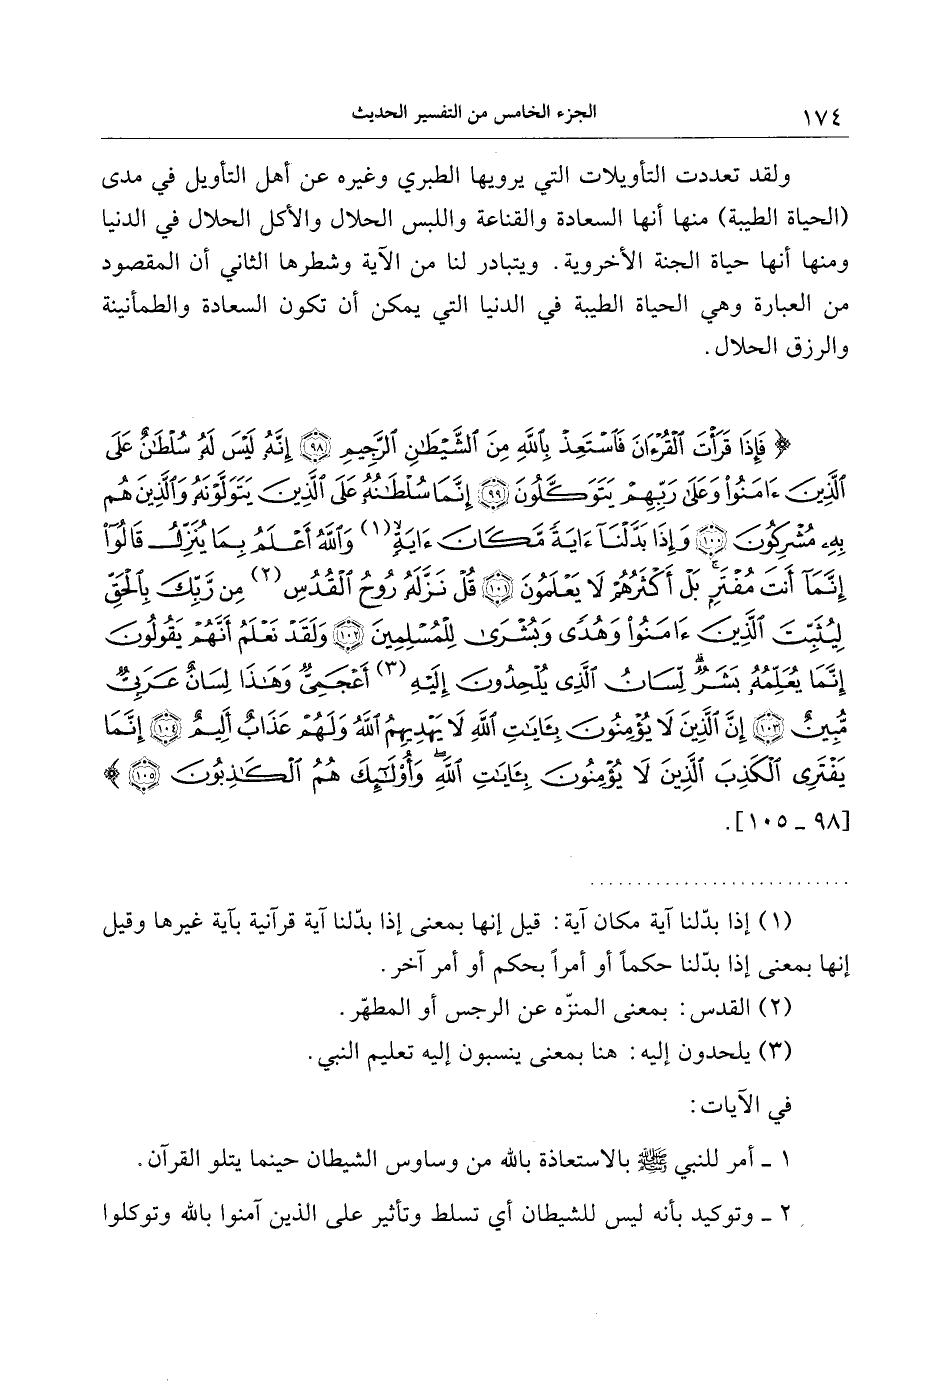 ١٧٤ الجزء الخامس من التفسير الحديث
ولقد تعددت التأويلات التي يرويها الطبري وغيره عن أهل التأويل في مدى
(الحياة الطيبة) منها أنها السعادة والقناعة واللبس الحلال والأكل الحلال في الدنيا
ومنها أنها حياة الجنة الأخروية. ويتبادر لنا من الآية وشطرها الثاني أن المقصود
من العبارة وهي الحياة الطيبة في الدنيا التي يمكن أن تكون السعادة والطمأنينة
والرزق الحلال.
﴿ فَإِذَا قَرَأْتَ ٱلْقُرْءَانَ فَٱسْتَعِذْ بِٱللَّهِ مِنَ ٱلشَّيْطَٰنِ ٱلرَّجِيمِ ٩٨ إِنَّهُۥ لَيْسَ لَهُۥ سُلْطَٰنٌ عَلَى
ٱلَّذِينَ ءَامَنُوا۟ وَعَلَىٰ رَبِّهِمْ يَتَوَكَّلُونَ ٩٩ إِنَّمَا سُلْطَٰنُهُۥ عَلَى ٱلَّذِينَ يَتَوَلَّوْنَهُۥ وَٱلَّذِينَ هُم
بِهِۦ مُشْرِكُونَ ١٠٠ وَإِذَا بَدَّلْنَآ ءَايَةً مَّكَانَ ءَايَةٍ ۙ (١) وَٱللَّهُ أَعْلَمُ بِمَا يُنَزِّلُ قَالُوٓا۟
إِنَّمَآ أَنتَ مُفْتَرٍۭ ۚ بَلْ أَكْثَرُهُمْ لَا يَعْلَمُونَ ١٠١ قُلْ نَزَّلَهُۥ رُوحُ ٱلْقُدُسِ (٢) مِن رَّبِّكَ بِٱلْحَقِّ
لِيُثَبِّتَ ٱلَّذِينَ ءَامَنُوا۟ وَهُدًى وَبُشْرَىٰ لِلْمُسْلِمِينَ ١٠٢ وَلَقَدْ نَعْلَمُ أَنَّهُمْ يَقُولُونَ
إِنَّمَا يُعَلِّمُهُۥ بَشَرٌ ۗ لِّسَانُ ٱلَّذِى يُلْحِدُونَ إِلَيْهِ (٣) أَعْجَمِىٌّ وَهَٰذَا لِسَانٌ عَرَبِىٌّ
مُّبِينٌ ١٠٣ إِنَّ ٱلَّذِينَ لَا يُؤْمِنُونَ بِـَٔايَٰتِ ٱللَّهِ لَا يَهْدِيهِمُ ٱللَّهُ وَلَهُمْ عَذَابٌ أَلِيمٌ ١٠٤ إِنَّمَا
يَفْتَرِى ٱلْكَذِبَ ٱلَّذِينَ لَا يُؤْمِنُونَ بِـَٔايَٰتِ ٱللَّهِ ۖ وَأُو۟لَٰٓئِكَ هُمُ ٱلْكَٰذِبُونَ ١٠٥ ﴾
[٩٨ ـ ١٠٥].
..........................
(١) إذا بدّلنا آية مكان آية: قيل إنها بمعنى إذا بدّلنا آية قرآنية بآية غيرها وقيل
إنها بمعنى إذا بدّلنا حكماً أو أمراً بحكم أو أمر آخر.
(٢) القدس: بمعنى المنزّه عن الرجس أو المطهّر.
(٣) يلحدون إليه: هنا بمعنى ينسبون إليه تعليم النبي.
في الآيات:
١ ـ أمر للنبي ﷺ بالاستعاذة بالله من وساوس الشيطان حينما يتلو القرآن.
٢ ـ وتوكيد بأنه ليس للشيطان أي تسلط وتأثير على الذين آمنوا بالله وتوكلوا